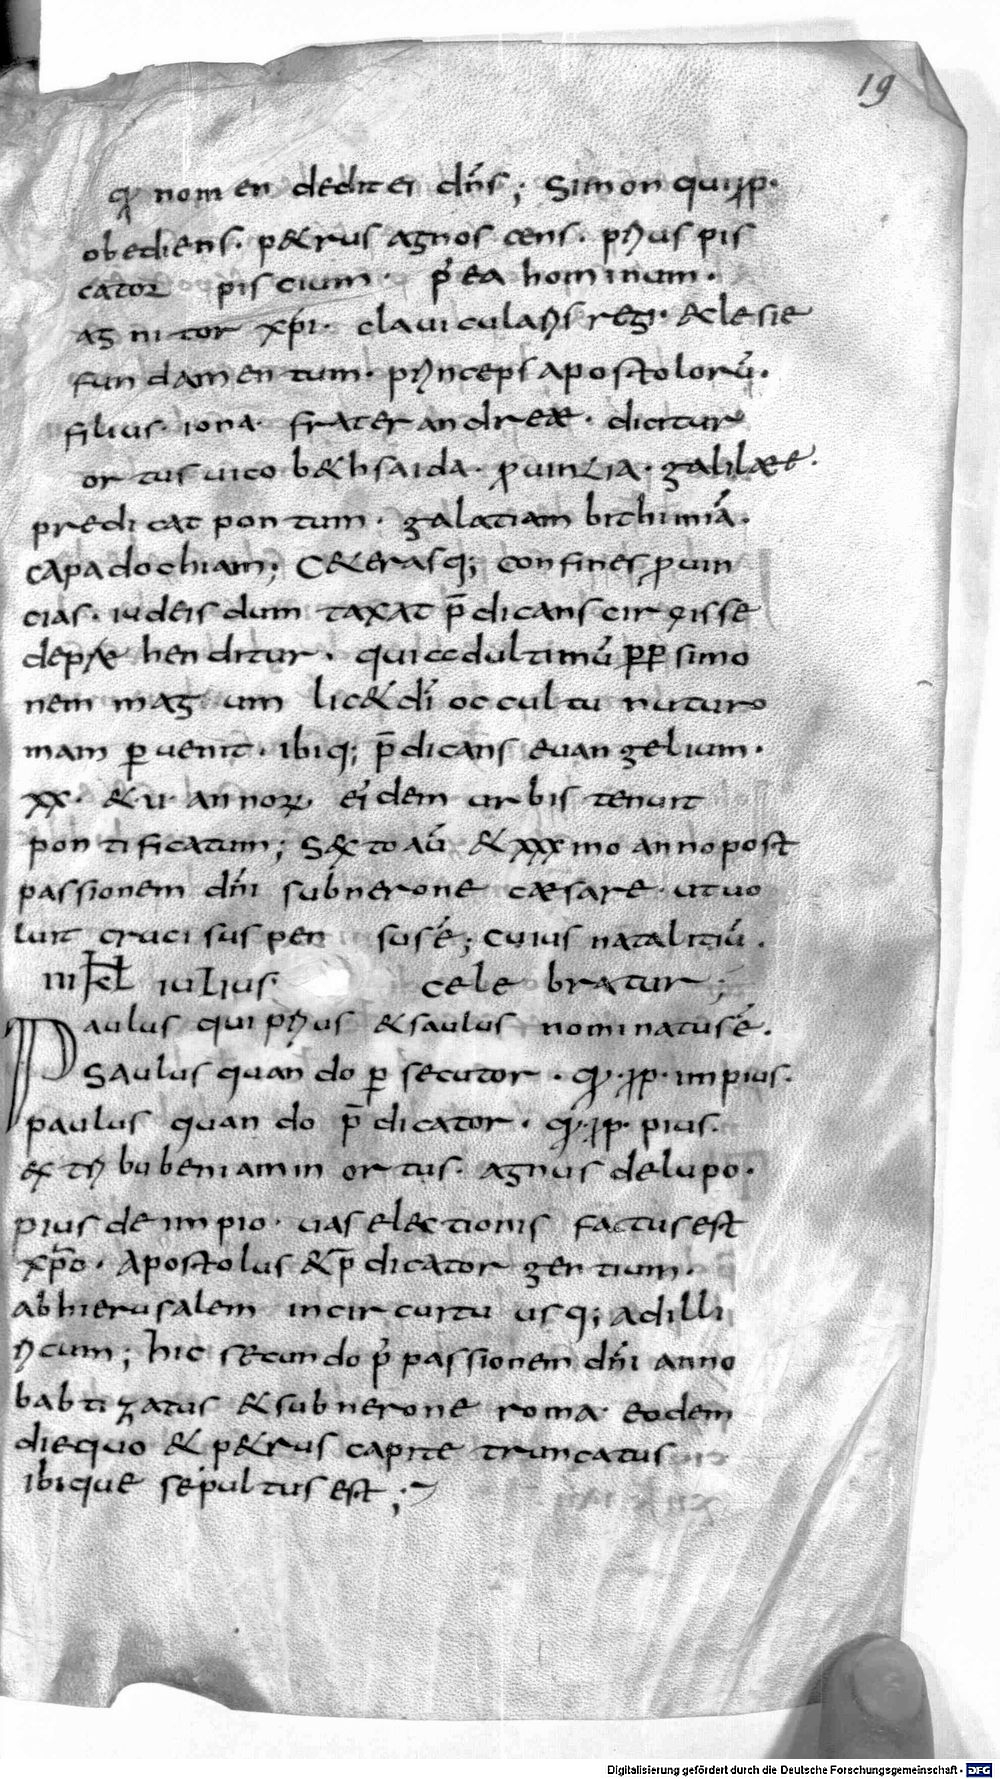 19
qđ nomen dedit ei dn̄s; Simon qui īp̄.
obediens. p&rus agnoscens. prius pis
cator piscium. p̄ ea hominum.
agnitor xp̄i. clauicularis regi. &clesie
fundamentum. princeps apostolorū.
filius iona. frater andreæ. dicitur
ortus uico b&hsaida. ꝓuintia. galilææ.
predicat pontum. galatiam bithimiā.
capadochiam; C&erasq; confines ꝓuin
cias. iudeis dum taxat p̄dicans circisse
depræhenditur. qui & dultimū ꝓꝑ simo
nem magum lic& dī occultu nutu ro
mam ꝑuenit. ibiq; p̄dicans euangelium.
xx. & u annoꝝ eīdem urbis tenuit
pontificatum; S&to aū & xxxmo anno post
passionem dn̄i sub nerone cæsare. ut uo
luit cruci suspensus ē; cuius natalitiū.
iii kl iulius celebratur;
Paulus qui prius & saulus nominatus ē.
Saulus quando ꝑsecutor. qđ. īp̄. impius.
paulus quando p̄dicator. qđ. īp̄. pius.
ex tribu beniamin ortus. agnus de lupo.
pius de impio. uas electionis factus est
xp̄o. Apostolus & p̄dicator gentium.
ab hierusalem in circuitu usq; ad illi
ricum; hic secundo p̄ passionem dn̄i anno
babtizatus & sub nerone roma eodem
die quo & p&rus capite truncatus
ibique sepultus est;
Digitalisierung gefördert durch die Deutsche Forschungsgemeinschaft - DFG